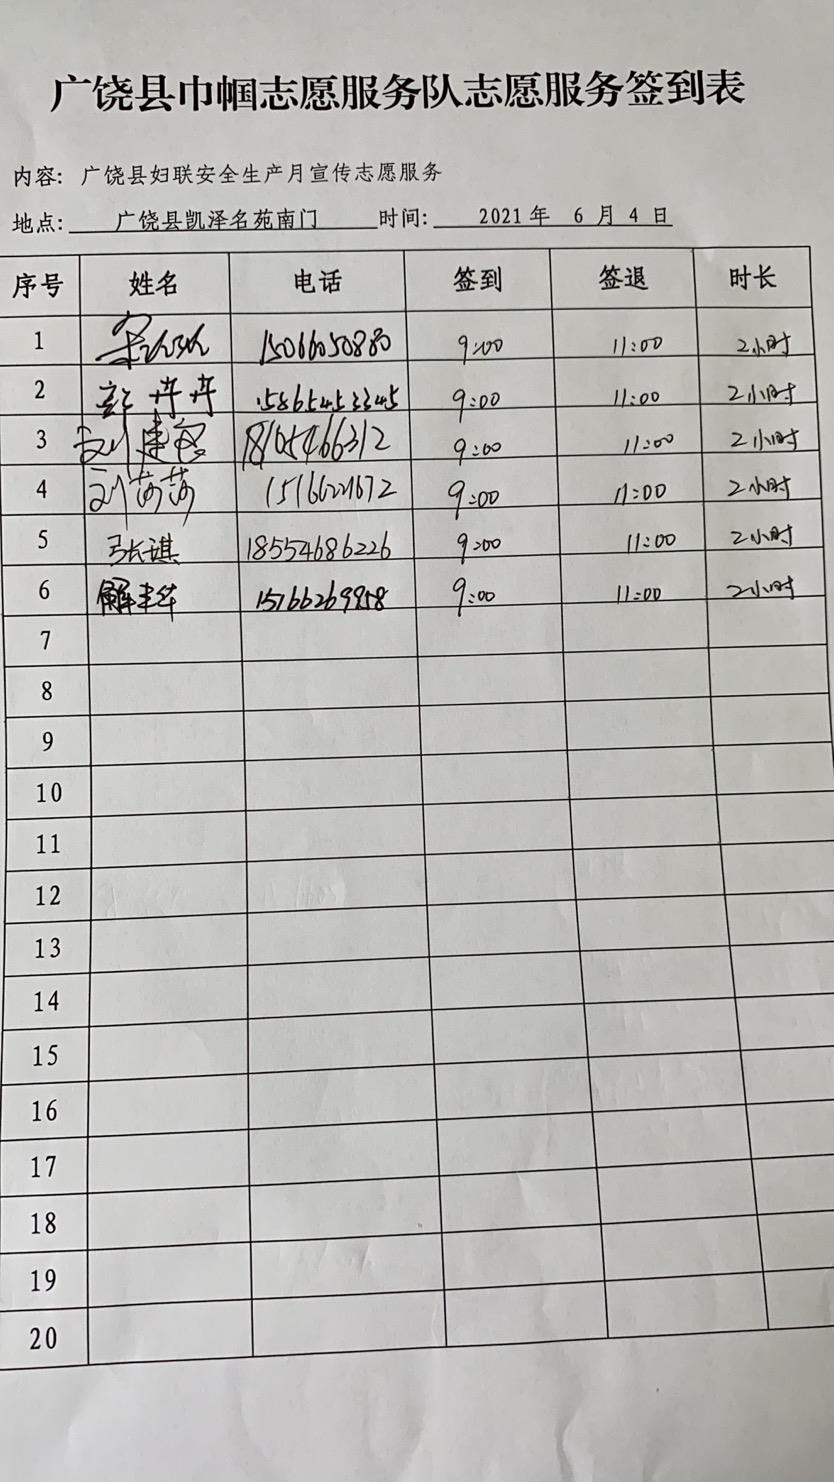 广饶县巾帼志愿服务队志愿服务签到表
内容: 广饶县妇联安全生产月宣传志愿服务
地点: 广饶县凯泽名苑南门 时间: 2021 年 6 月 4 日
序号 姓名 电话 签到 签退 时长
1 15066050880 9:00 11:00 2小时
2 15865453345 9:00 11:00 2小时
3 刘建敏 18105466312 9:00 11:00 2小时
4 刘莎莎 9:00 11:00 2小时
5 张祺 18554686226 9:00 11:00 2小时
6 15766269958 9:00 11:00 2小时
7
8
9
10
11
12
13
14
15
16
17
18
19
20